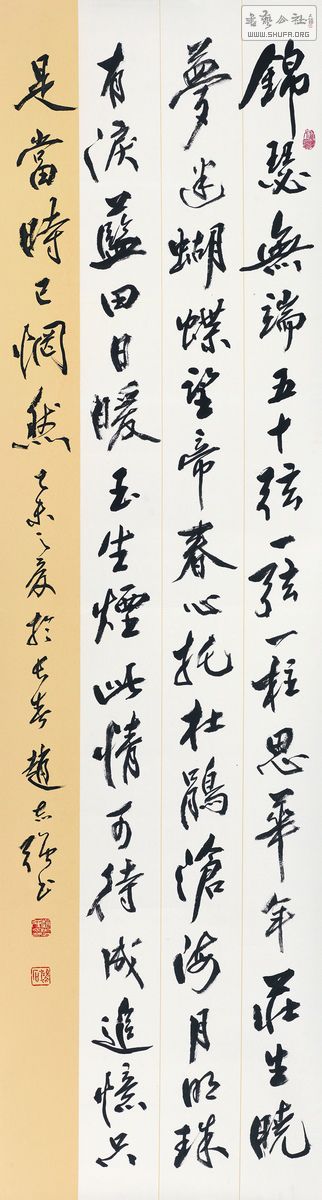 錦瑟無端五十弦一弦一柱思華年莊生曉
夢迷蝴蝶望帝春心托杜鵑滄海月明珠
有淚藍田日暖玉生煙此情可待成追憶只
是當時已惘然
之夏於長春趙志強書
書藝公社
WWW.SHUFA.ORG